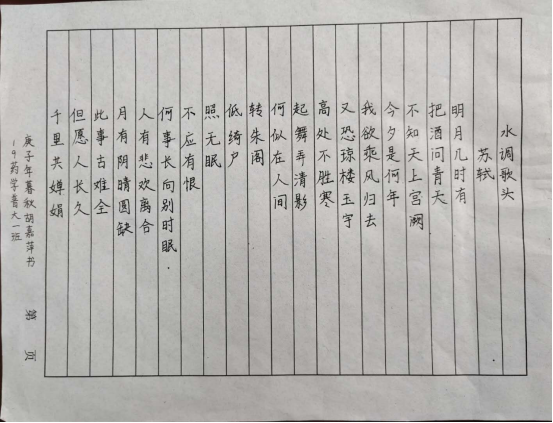 水调歌头
苏轼
明月几时有
把酒问青天
不知天上宫阙
今夕是何年
我欲乘风归去
又恐琼楼玉宇
高处不胜寒
起舞弄清影
何似在人间
转朱阁
低绮户
照无眠
不应有恨
何事长向别时眠.
人有悲欢离合
月有阴晴圆缺
此事古难全
但愿人长久
千里共婵娟
庚子年暮秋胡嘉萍书
19药学鲁大一班
第 页